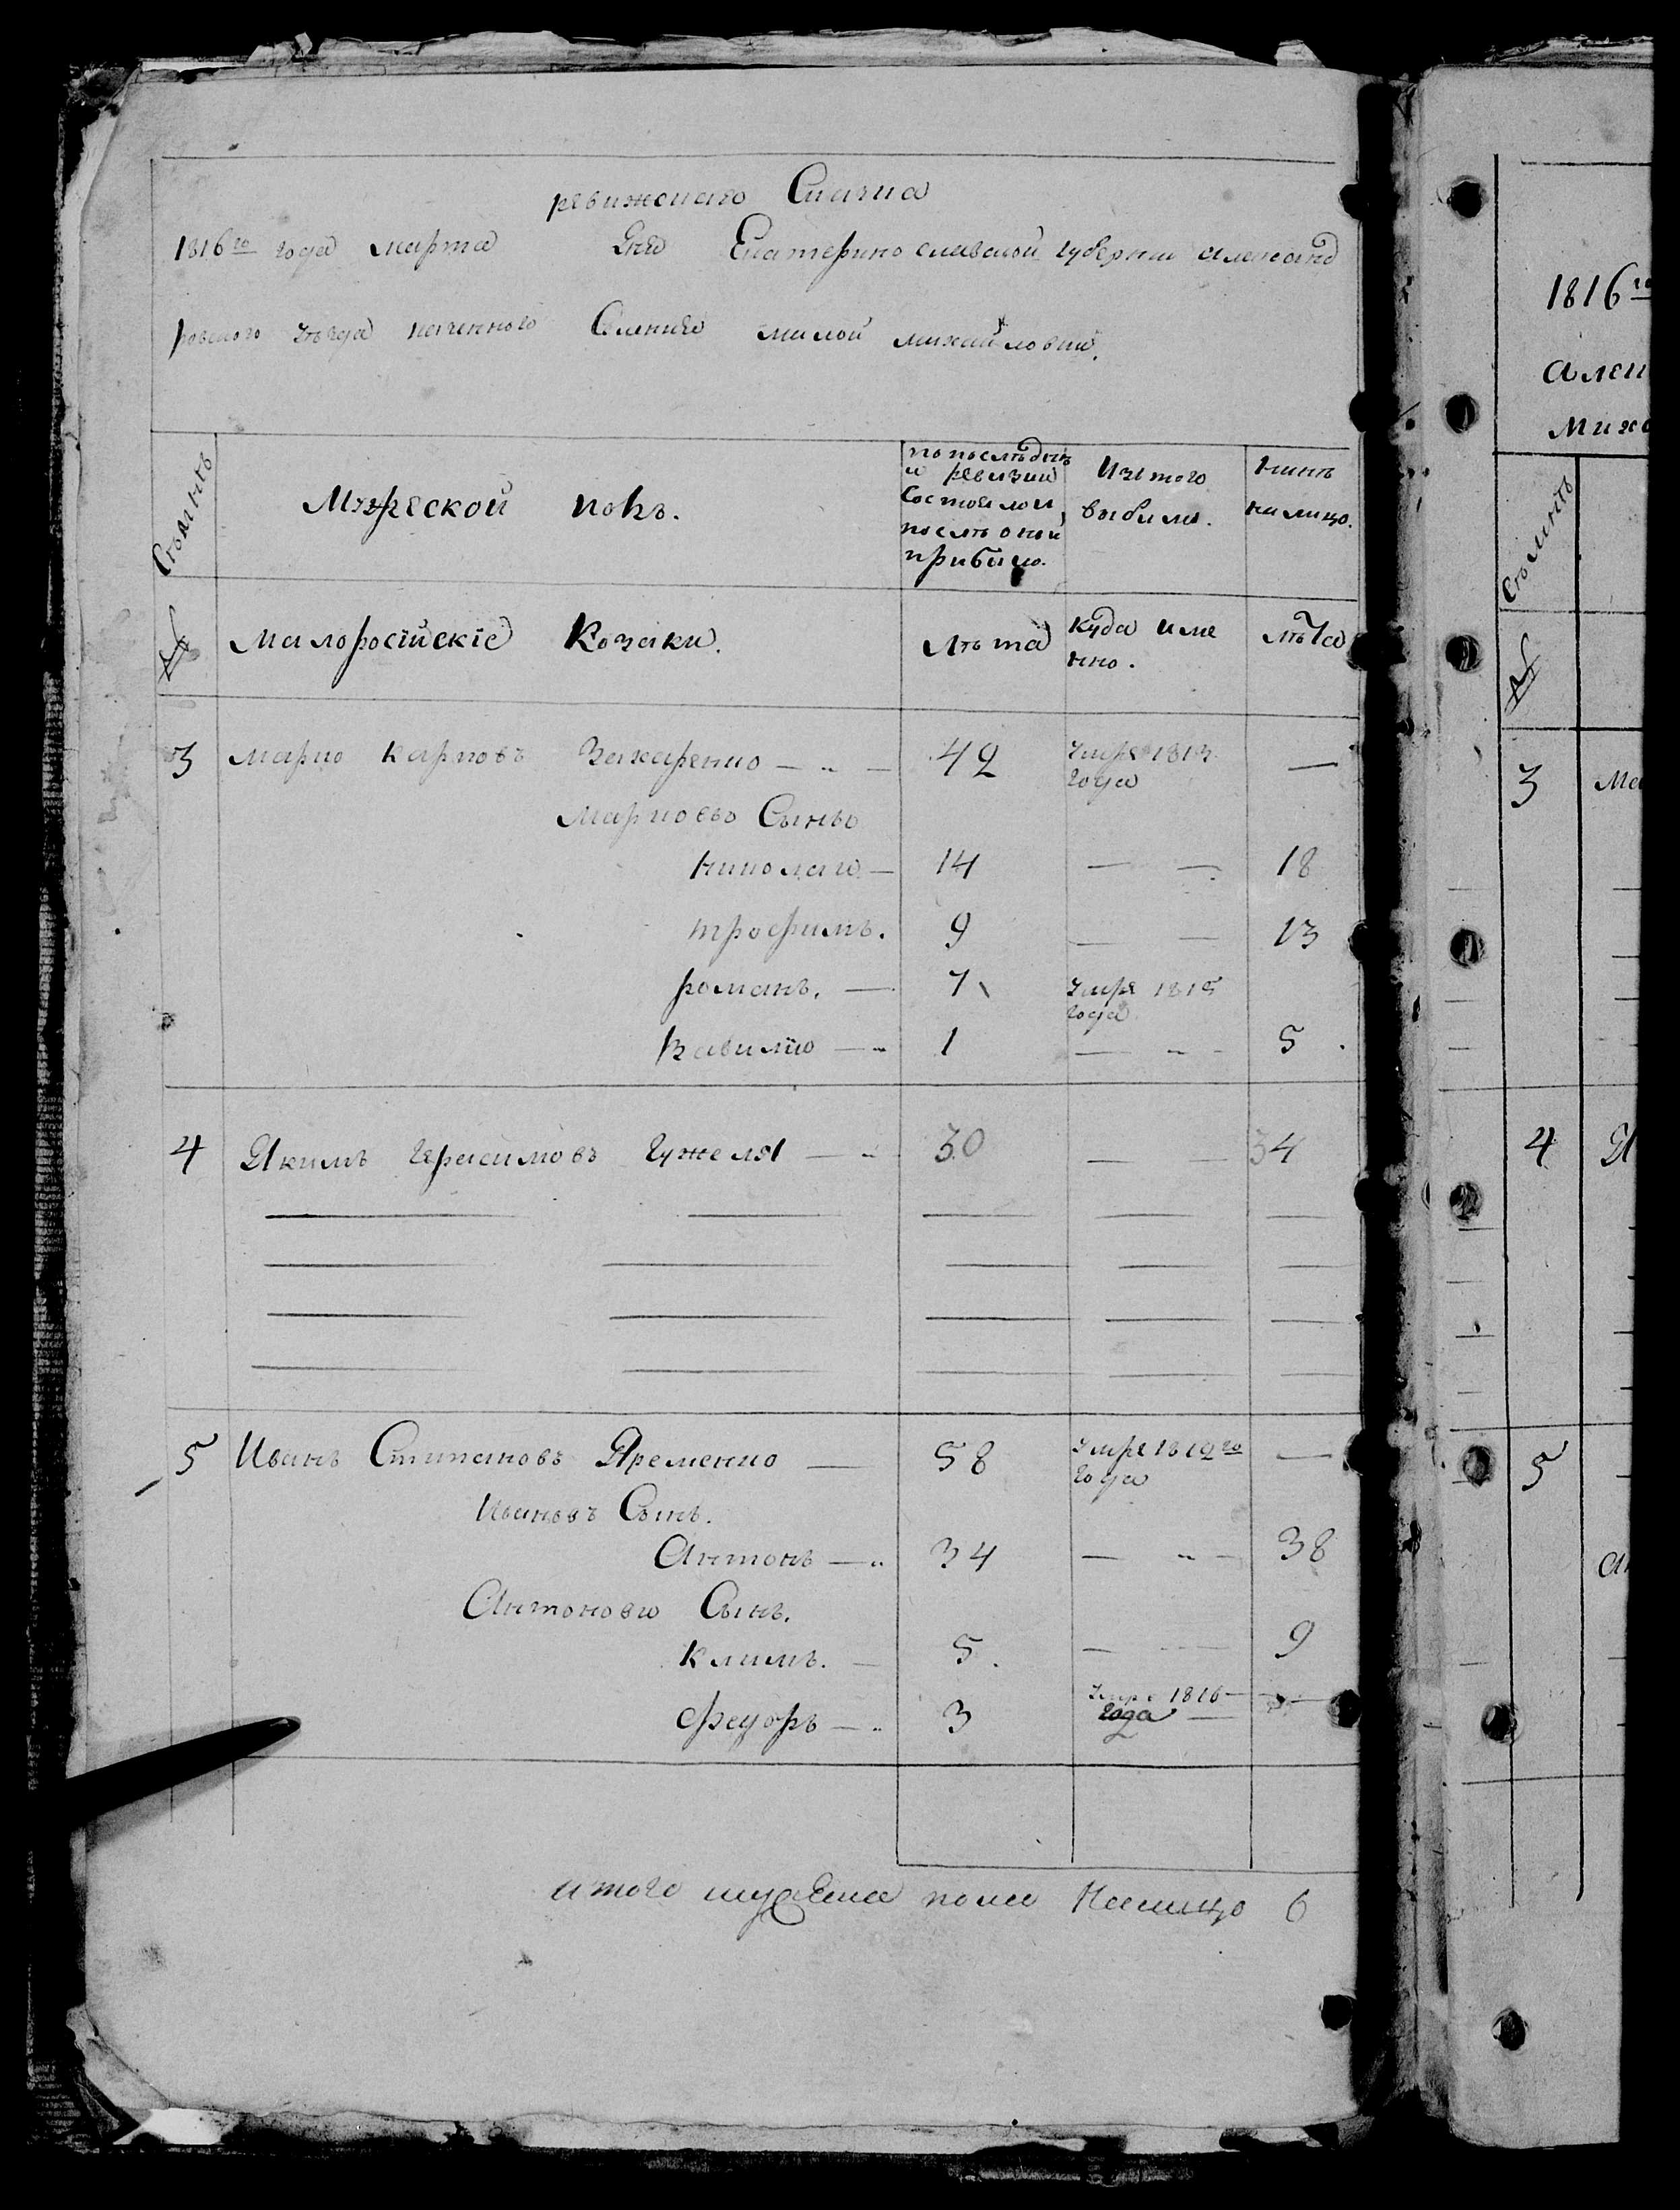 ревижская Скаска
1816го года марта дня Екатеринославской губернии Александ
ровского уезда казенного Селения малой михайловки.
Семьи
Мужеской полъ.
по последне
й ревизии
состояло и
после оной
прибыло.
Изътого
выбыло.
ныне
на лицо.
№ Малоросiйскiе Козаки. Лѣта Куда име лѣта
нно.
3 Марко Карповъ Захаренко 42 умре 1813 —
года
Марковы Сынъы
николай — 14 — — 18
трофимъ. 9 — — 13
романъ. — 7 умре 1815
года
Вавило — 1 — 5
4 Якимъ Герасимовъ Гужеля — 30 — 34
5 Иванъ Стипановъ Яременко — 58 умре 1812го —
года
Ивановъ Сынъ.
Антонъ — 34 — 38
Антоновы Сынъ.
Климъ. — 5. — 9
Федоръ — 3 умре 1816 —
года —
итого мужеска пола Налицо 6
1816го
Алек
Миха
Семьи
№
3 Ма
4 Я
5
Ан